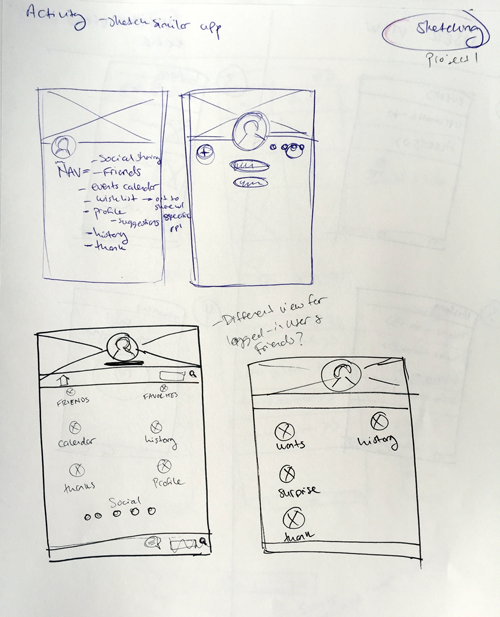 Activity - sketch similar app
Sketching
Project 1
NAV= - Social sharing
- Friends
- events calendar
- wishlist → opt to
share w/
specific
ppl
- profile
- suggestions
- history
- thank
- Different view for
logged-in user &
Friends?
FRIENDS
FAVORITES
calendar
history
thanks
Profile
Social
wants
history
surprise
thank